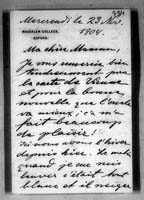 Mercredi le 23 Nov.
MAGDALEN COLLEGE,
OXFORD.
1904.
Ma chère Maman,
Je vous remercie bien
tendrement par
la carte de
et pour la bonne
nouvelle que l'oncle
va mieux; ça m'a
fait beaucoup
de plaisir!
Ici nous avons l'hiver
depuis hier. Ce matin
quand je me suis
levé c'était tout
blanc et il neigeait